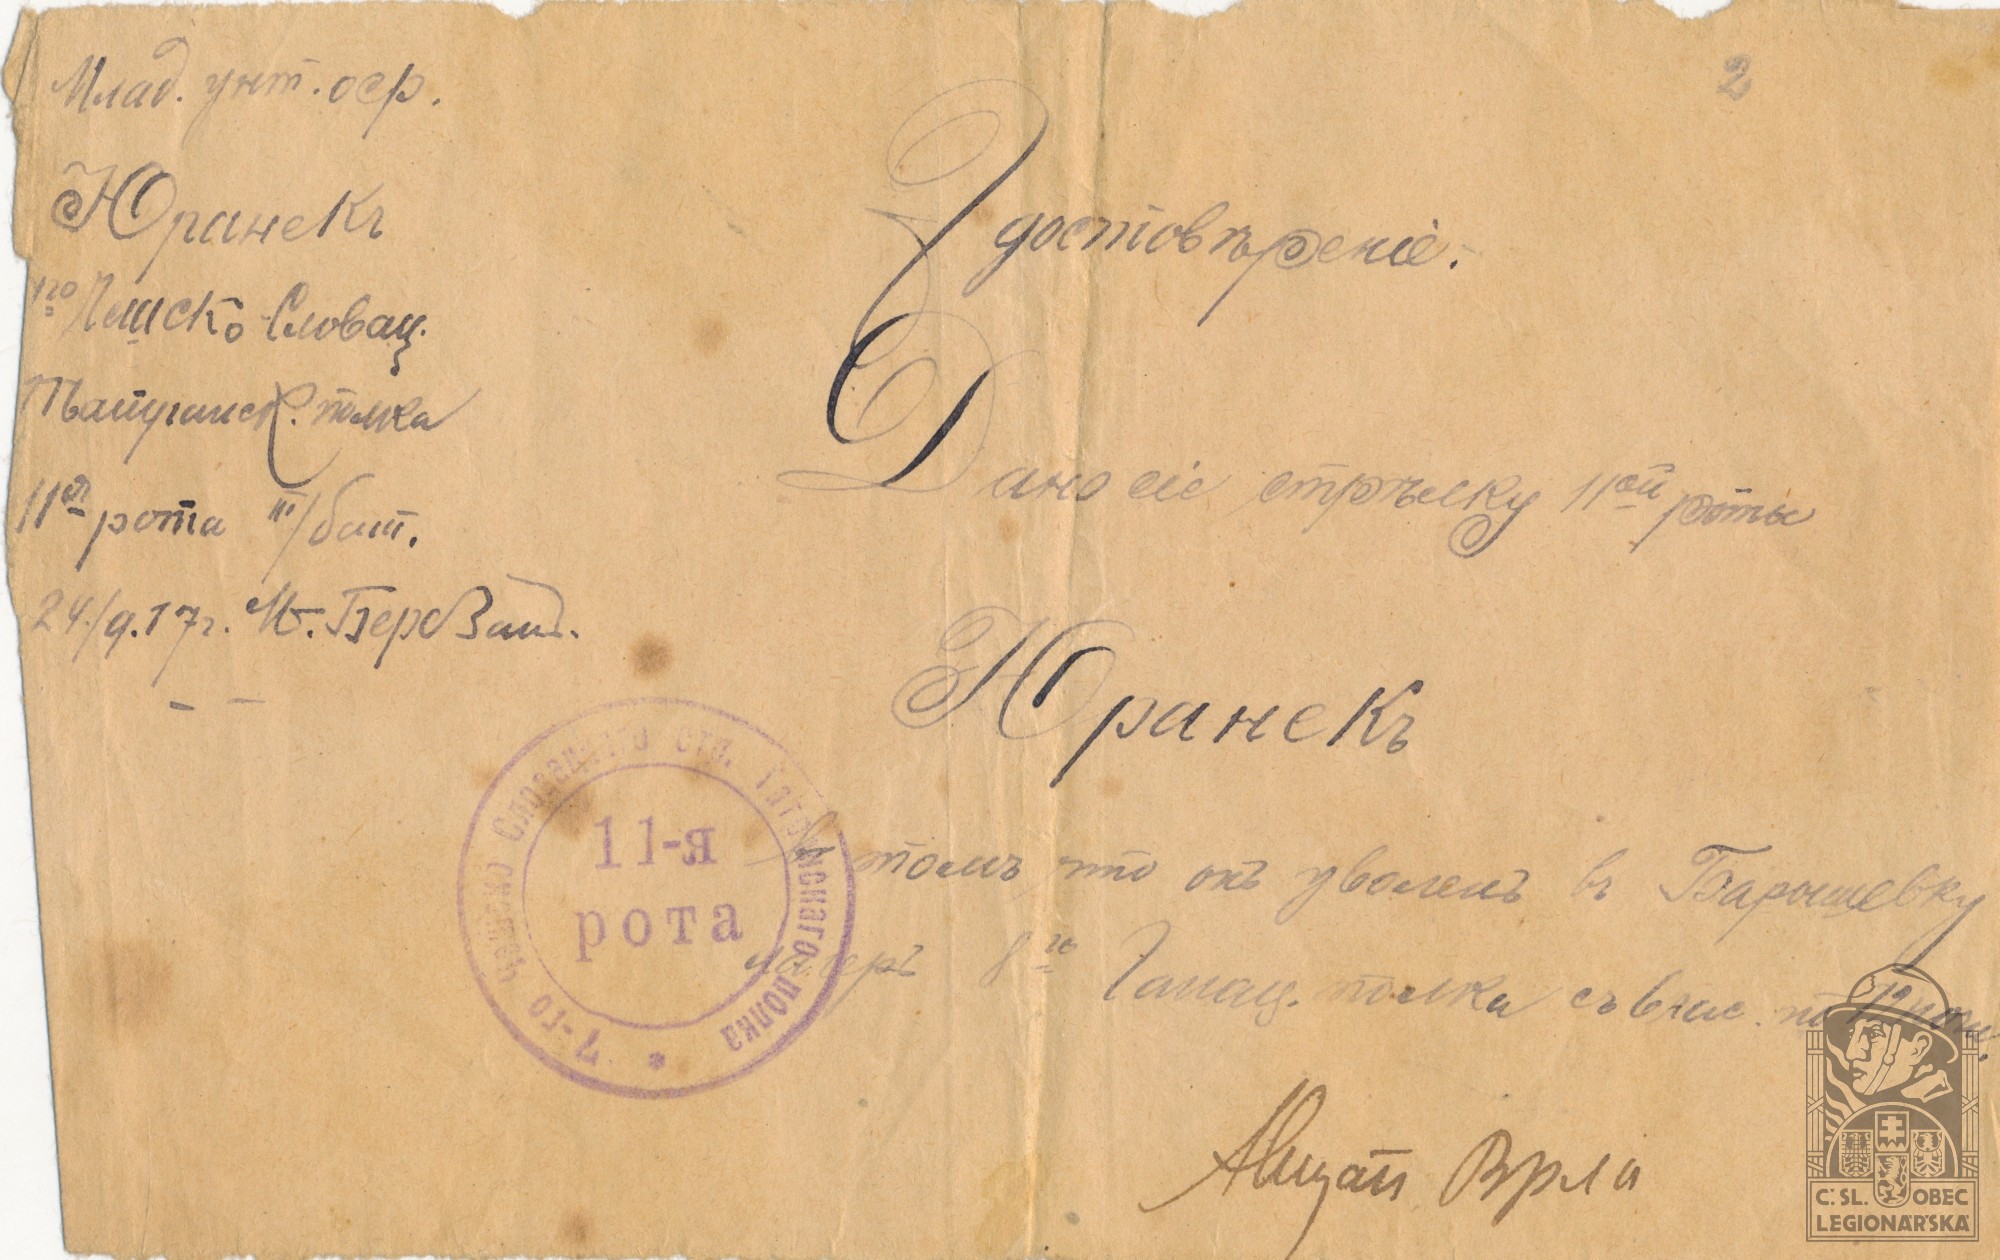 Млад. унт. оф.
Юранекъ
7го Чешско-Словац.
Татранск. полка
11ая рота III/бат.
24./9.17г. М. Березань.
2
Удостовѣреніе.
Дано сіе стрѣлку 11ой роты
Юранекъ
въ томъ что онъ уволенъ въ Барышевку
8го полка съ
Врла
7-го Чешско Словацкаго стр. Татранскаго полка *
11-я
рота
Č.SL. OBEC
LEGIONÁŘSKÁ